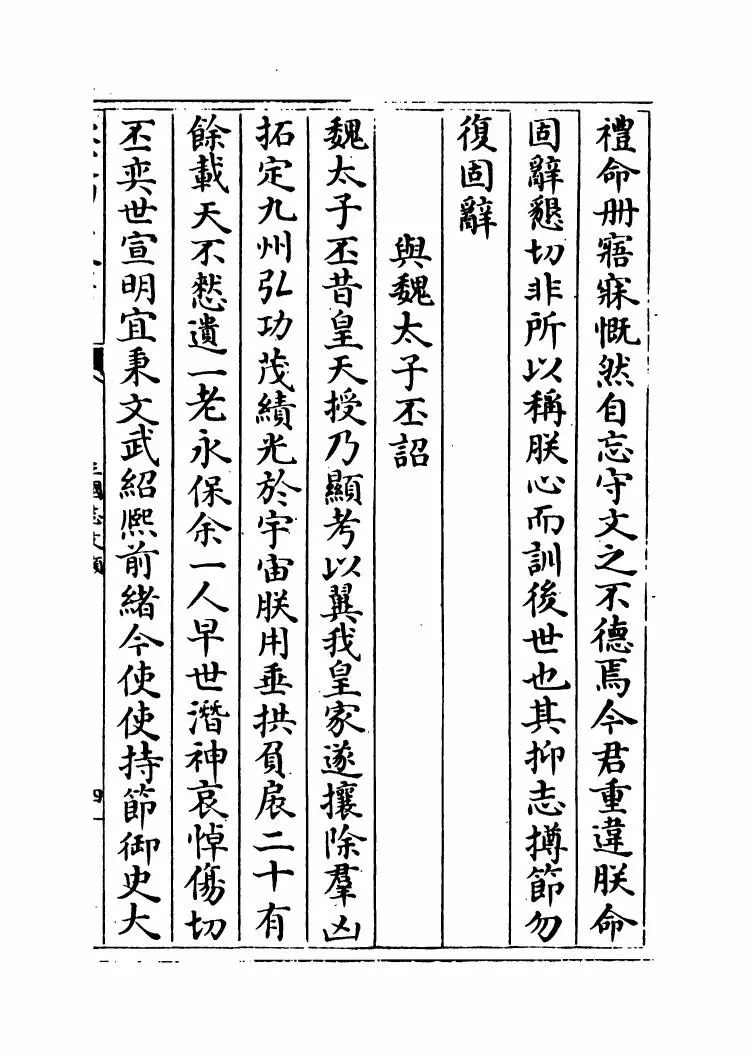 禮命册寤寐慨然自忘守文之不德焉今君重違朕命
固辭懇切非所以稱朕心而訓後世也其抑志撙節勿
復固辭
與魏太子丕詔
魏太子丕昔皇天授乃顯考以翼我皇家遂攘除羣凶
拓定九州弘功茂績光於宇宙朕用垂拱負扆二十有
餘載天不憗遺一老永保余一人早世潛神哀悼傷切
丕奕世宣明宜秉文武紹熙前緒今使使持節御史大
三國志文類
四